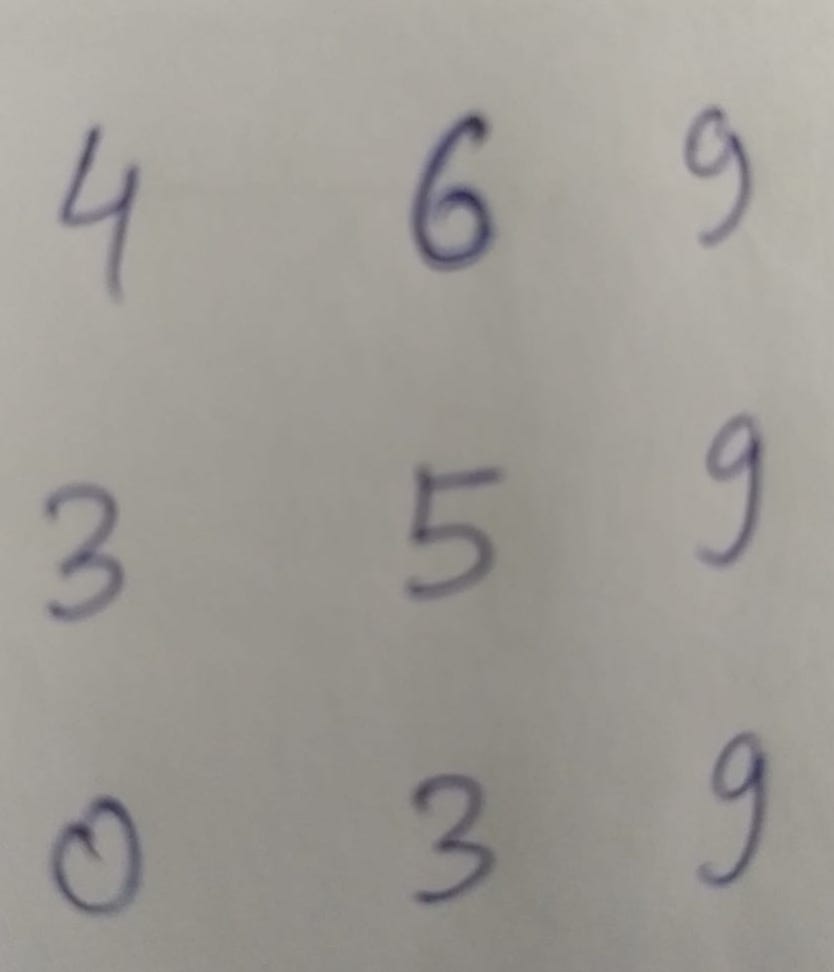 4 6 9
3 5 9
0 3 9